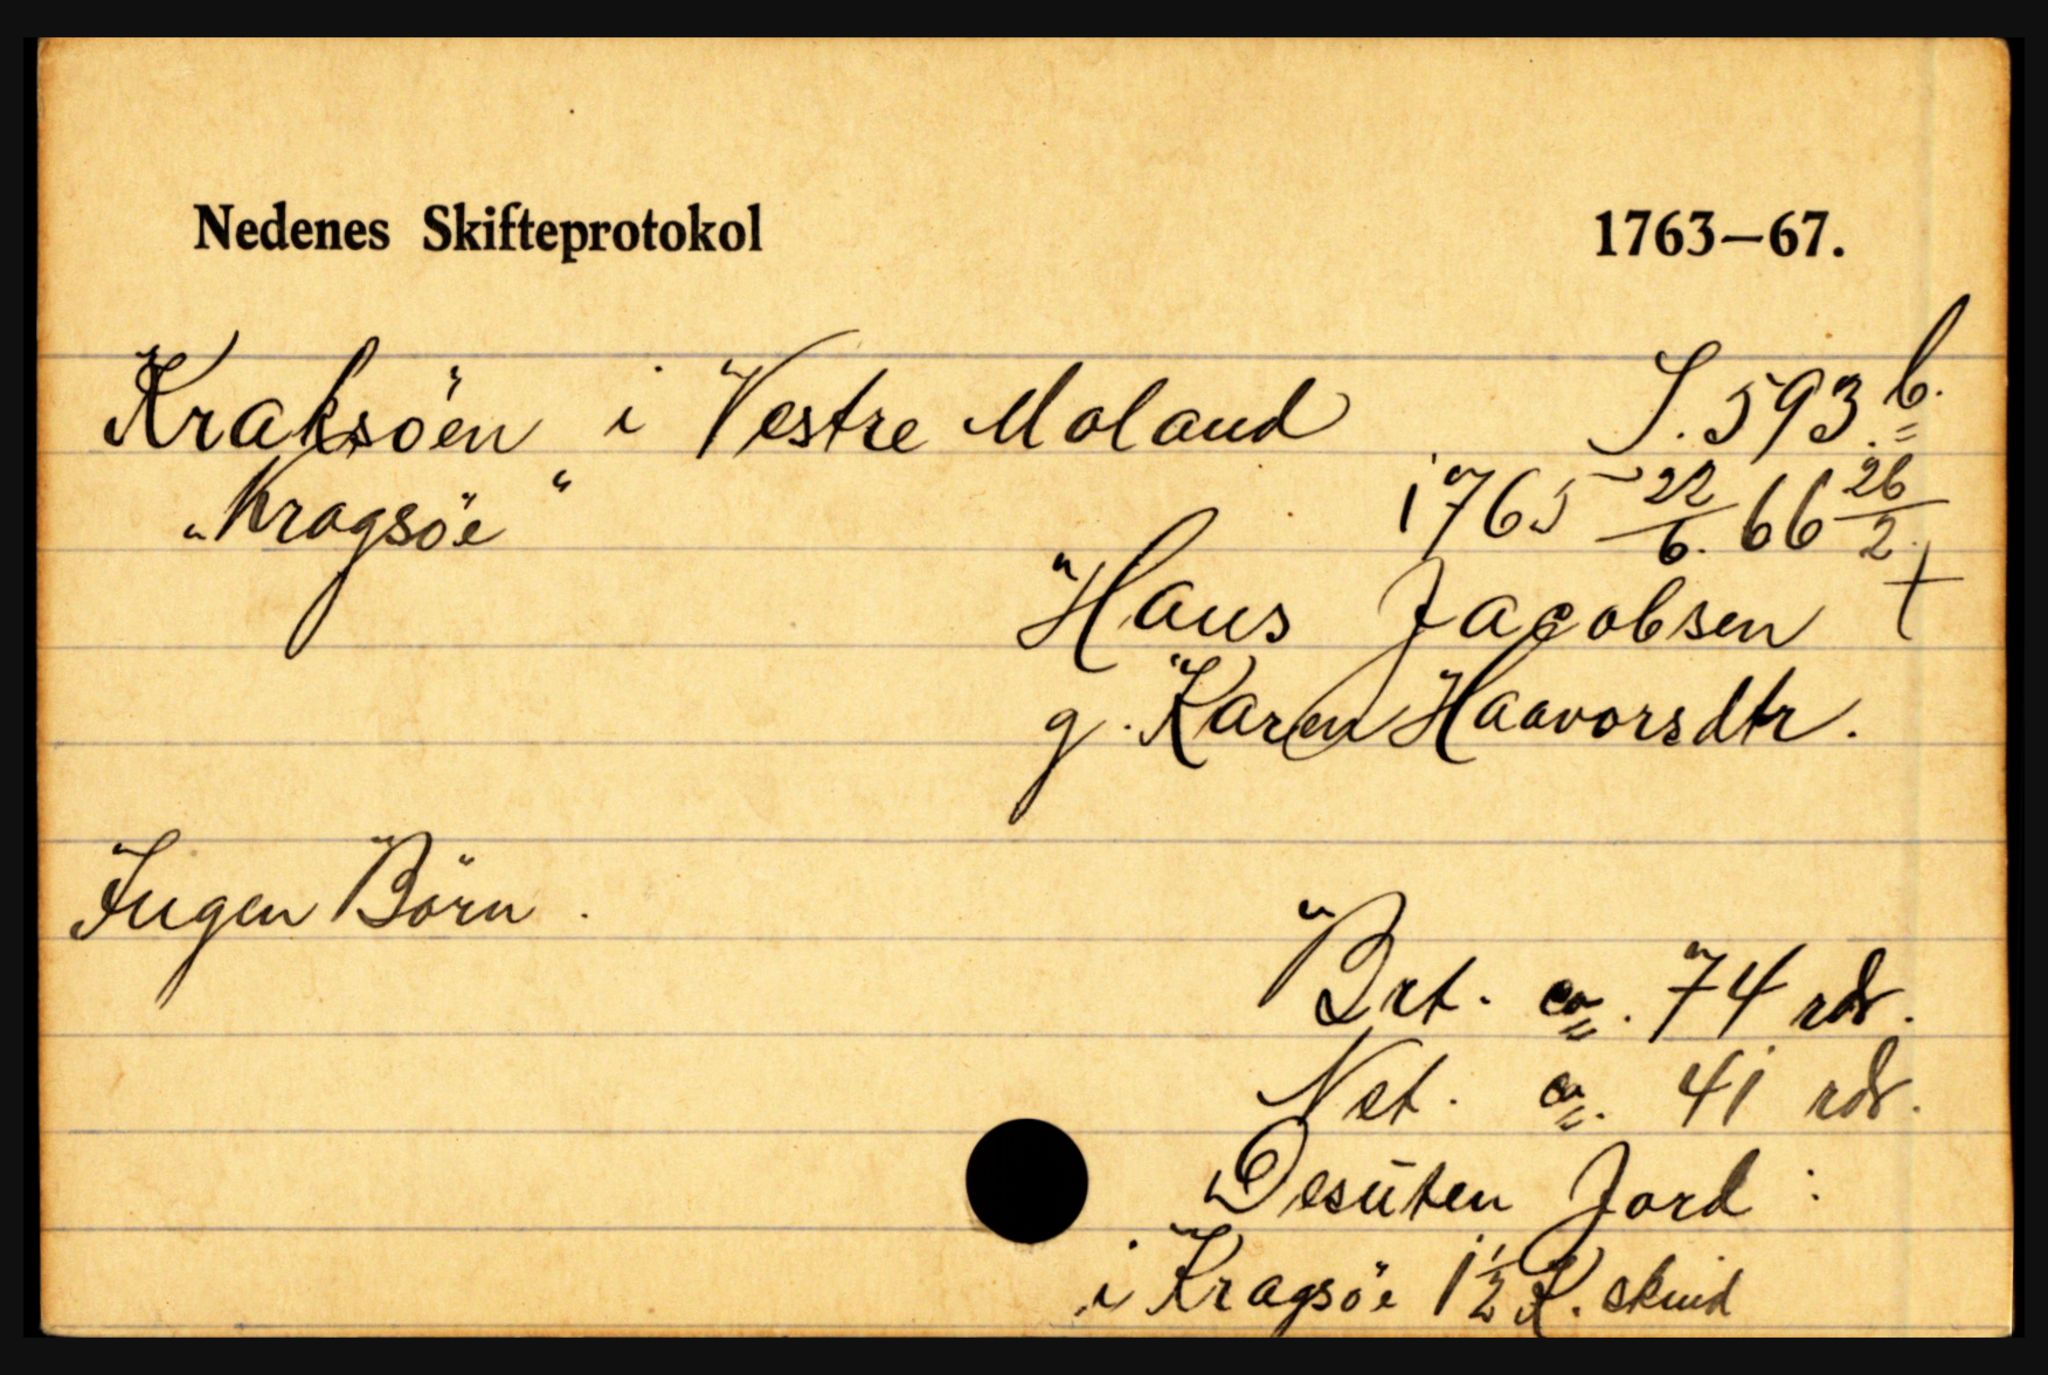 Nedenes Skifteprotokol 1763–67.
Kraksöen i Vestre Moland S. 593.b.
„Kragsöe“ 1765 22/6. 66 26/2.
Hans Jacobsen +
g. Karen Haavorsdtr.
Ingen Börn.
Brt. ca. 74 rdr.
Net. ca. 41 rdr.
Desuten Jord:
i Kragsöe 1 1/2 K. skind